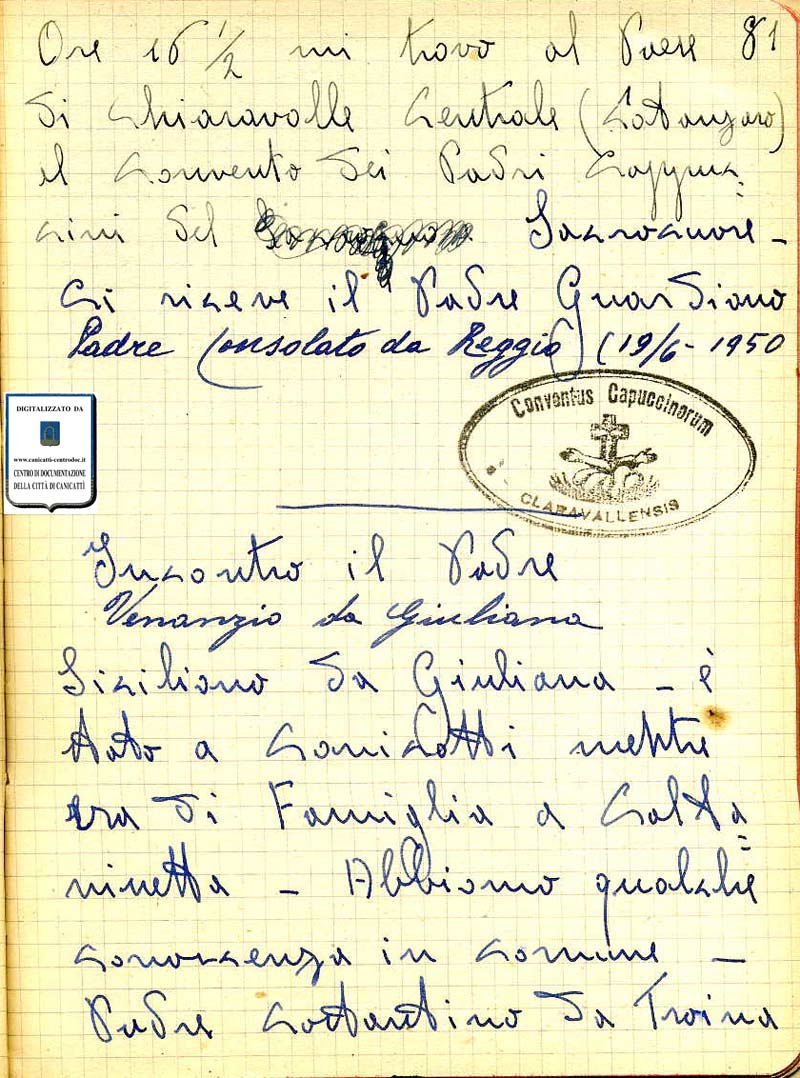 Ore 16 1/2 mi trovo al Paese 81
di Chiaravalle Centrale (Catanzaro)
al Convento dei Padri Cappuc=
cini del Sacrocuore -
Ci riceve il Padre Guardiano
Padre Consolato da Reggio) (19/6-1950
Conventus Capuccinorum
CLARAVALLENSIS
DIGITALIZZATO DA
www.canicatti-centrodoc.it
CENTRO DI DOCUMENTAZIONE
DELLA CITTÀ DI CANICATTÌ
Incontro il Padre
Venanzio da Giuliana
Siciliano da Giuliana - è
stato a Canicatti mentre
era di Famiglia a Calta=
nisetta - Abbiamo qualche
conoscenza in comune -
Padre Costantino da Troina